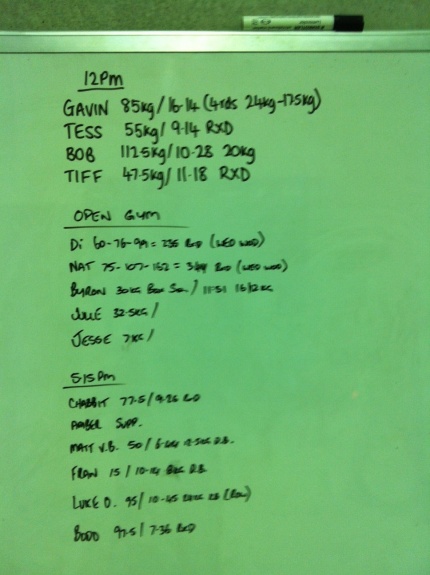 12Pm
GAVIN 85kg/16·14 (4rds 24kg-17.5kg)
TESS 55kg/9·14 RXD
BOB 112.5kg/10-28 20kg
TIFF 47.5kg/11·18 RXD
OPEN GYM
Di 60-76-99 = 235 RXD (WED WOD)
NAT 75-107-162 = 344 RXD (WED WOD)
BYRON 30KG Box / 11:51 16/12KG
JULIE 32.5KG /
JESSE 7KG /
515Pm
CHABBIT 77.5/9.26 RXD
AMBER SUPP.
MATT V.B. 50 / D.B.
FRAN 15 / 10.14 8KG D.B.
LUKE O. 95/ 10.45 (Row)
BODO 97.5/ 7.36 RXD